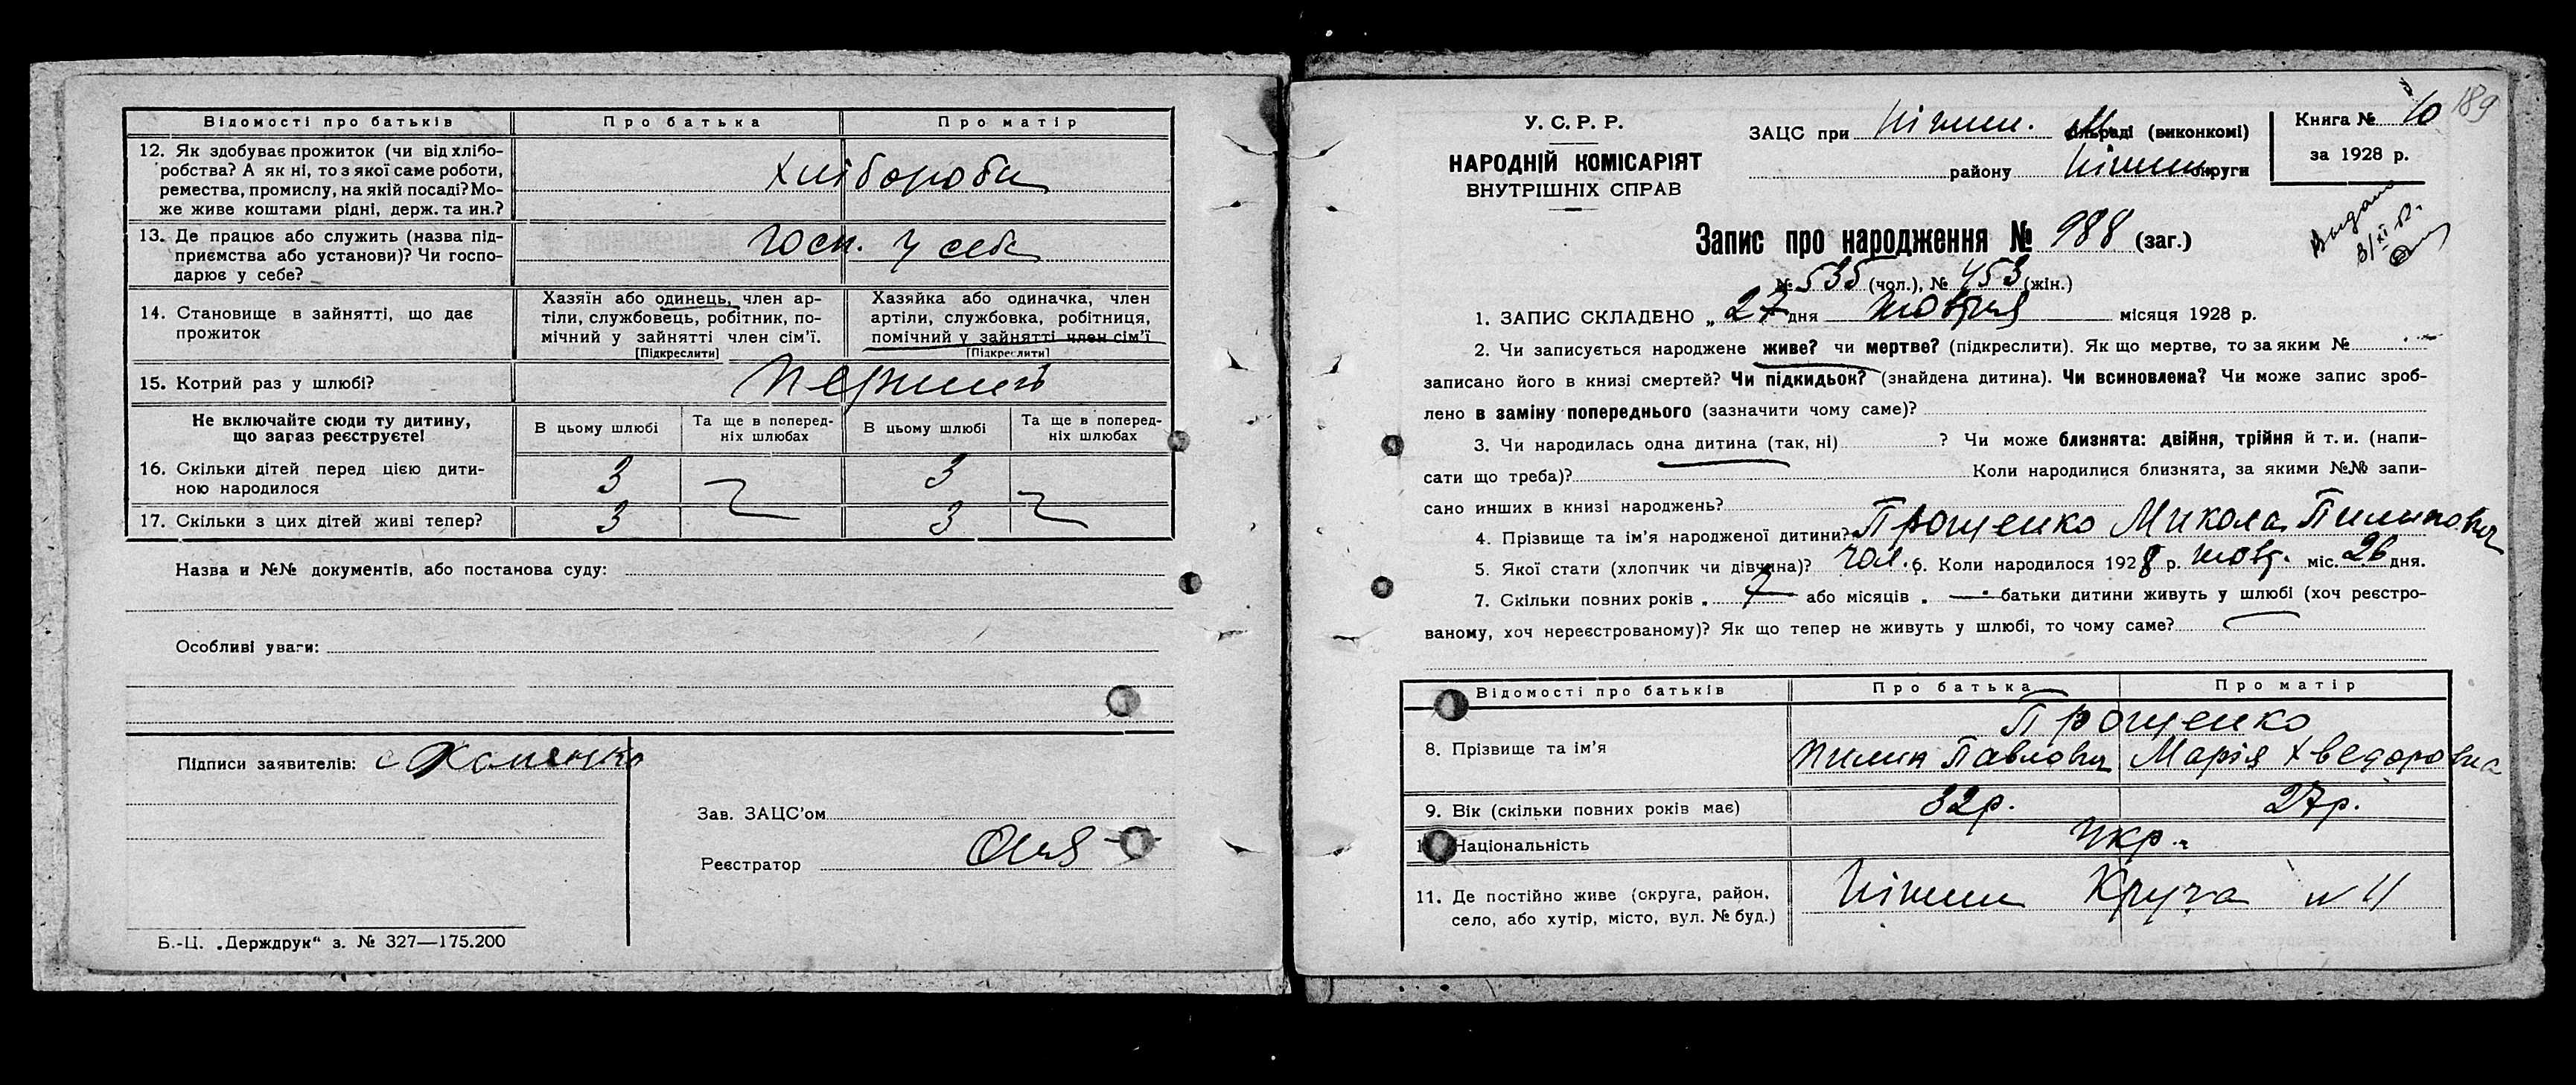 Відомості про батьків Про батька Про матір
12. Як здобуває прожиток (чи від хлібо-
робства? А як ні, то з якої саме роботи,
ремества, промислу, на якій посаді? Мо-
же живе коштами рідні, держ. та ин.?
хлібороби
13. Де працює або служить (назва під-
приємства або установи)? Чи госпо-
дарює у себе?
Госп. у себе
14. Становище в зайнятті, що дає
прожиток
Хазяїн або одинець, член ар-
тіли, службовець, робітник, по-
мічний у зайнятті член сім'ї.
[Підкреслити]
Хазяйка або одиначка, член
артіли, службовка, робітниця,
помічний у зайнятті член сім'ї
[Підкреслити]
15. Котрий раз у шлюбі?
Не включайте сюди ту дитину,
що зараз реєструєте!
В цьому шлюбі
Та ще в поперед-
ніх шлюбах
В цьому шлюбі
Та ще в поперед-
ніх шлюбах
16. Скільки дітей перед цією дити-
ною народилося
3 3
17. Скільки з цих дітей живі тепер? 3 3
Назва и №№ документів, або постанова суду:
Особливі уваги:
Підписи заявителів:
Зав. ЗАЦС'ом
Реєстратор
Б.-Ц. „Держдрук“ з. № 327—175.200
189
У. С. Р. Р.
НАРОДНІЙ КОМІСАРІЯТ
ВНУТРІШНІХ СПРАВ
ЗАЦС при Ніжин. сільраді (виконкомі)
району Ніжин округи
Книга № 10
за 1928 р.
Выдано
3/XI-52.
Запис про народження № 988 (заг.)
№ 535 (чол.), № 453 (жін.)
1. ЗАПИС СКЛАДЕНО „ 27 дня жовтня місяця 1928 р.
2. Чи записується народжене живе? чи мертве? (підкреслити). Як що мертве, то за яким №
записано його в книзі смертей? Чи підкидьок? (знайдена дитина). Чи всиновлена? Чи може запис зроб-
лено в заміну попереднього (зазначити чому саме)?
3. Чи народилась одна дитина (так, ні) ? Чи може близнята: двійня, трійня й т. и. (напи-
сати що треба)? Коли народилися близнята, за якими №№ запи-
сано инших в книзі народжень?
4. Прізвище та ім'я народженої дитини? Прощенко Микола Пилипович
5. Якої статі (хлопчик чи дівчина)? чол. 6. Коли народилося 1928 р. жовт. міс. 26 дня.
7. Скільки повних років „ 7 або місяців „ — “ батьки дитини живуть у шлюбі (хоч реєстро-
ваному, хоч нереєстрованому)? Як що тепер не живуть у шлюбі, то чому саме?
Відомості про батьків Про батька Про матір
8. Прізвище та ім'я
Прощенко
Пилип Павлович Марія Хведоровна
9. Вік (скільки повних років має) 32р. 27р.
Національність Укр.
11. Де постійно живе (округа, район,
село, або хутір, місто, вул. № буд.)
Ніжин Круча № 11